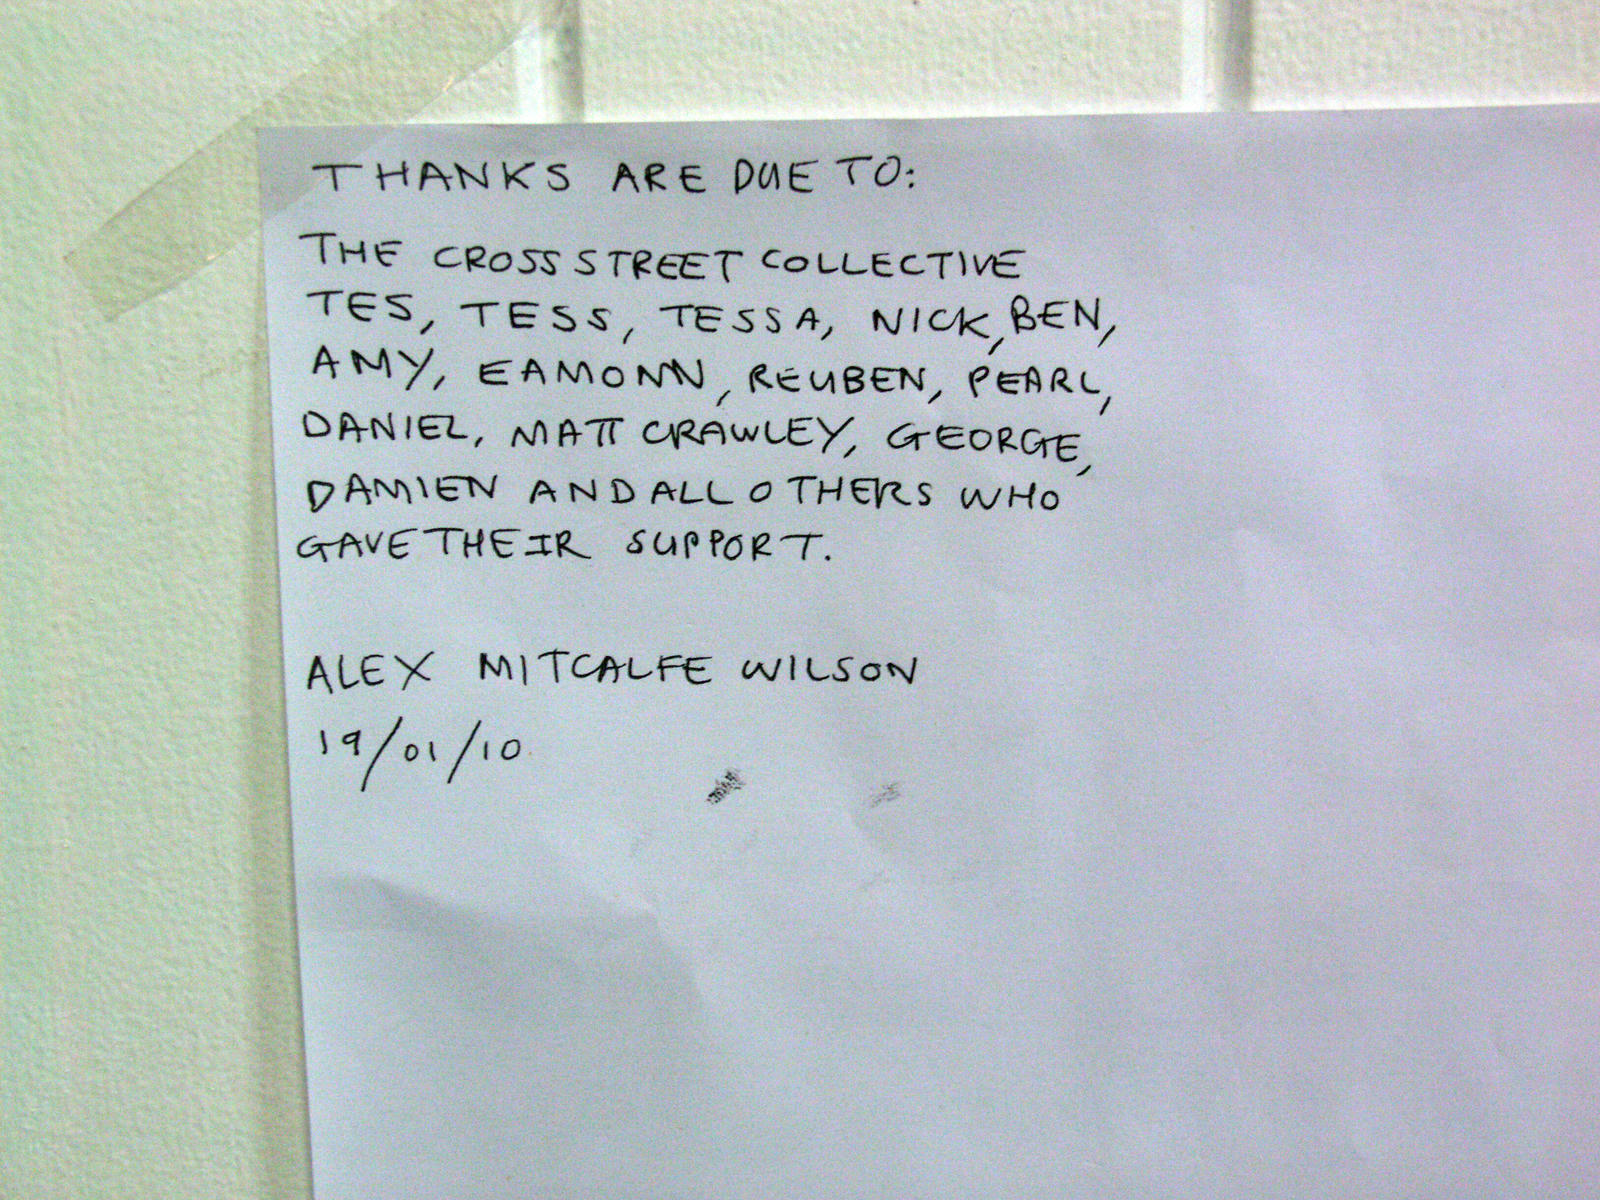 THANKS ARE DUE TO:
THE CROSS STREET COLLECTIVE
TES, TESS, TESSA, NICK, BEN,
AMY, EAMONN, REUBEN, PEARL,
DANIEL, MATT CRAWLEY, GEORGE,
DAMIEN AND ALL OTHERS WHO
GAVE THEIR SUPPORT.
ALEX MITCALFE WILSON
19/01/10